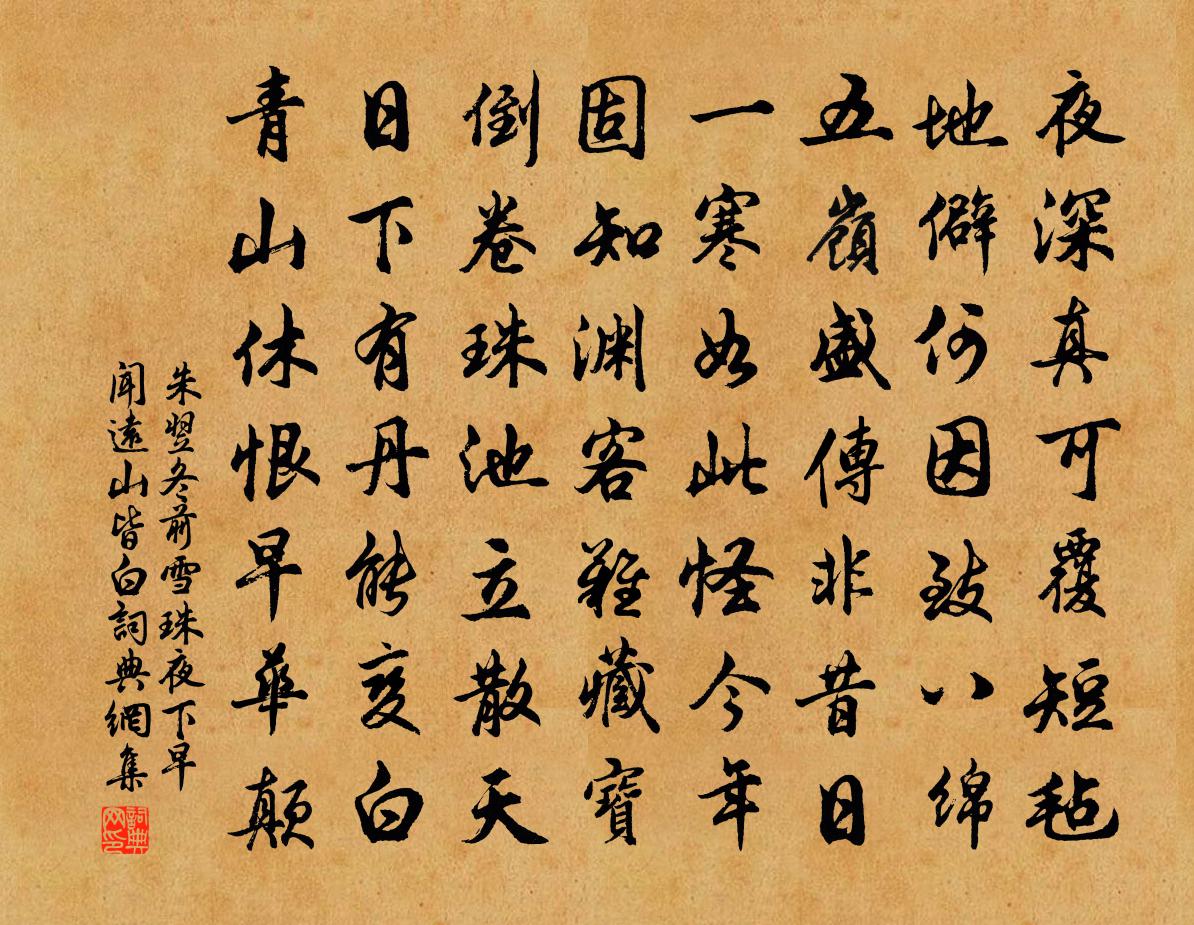 夜深真可覆短毡
地僻何因致八綿
五嶺盛傳非昔日
一寒如此怪今年
固知淵客難藏寶
倒卷珠池立散天
日下有丹能变白
青山休恨早華顛
朱翌冬前雪珠夜下早
聞遠山皆白詞典網集
詞典网印